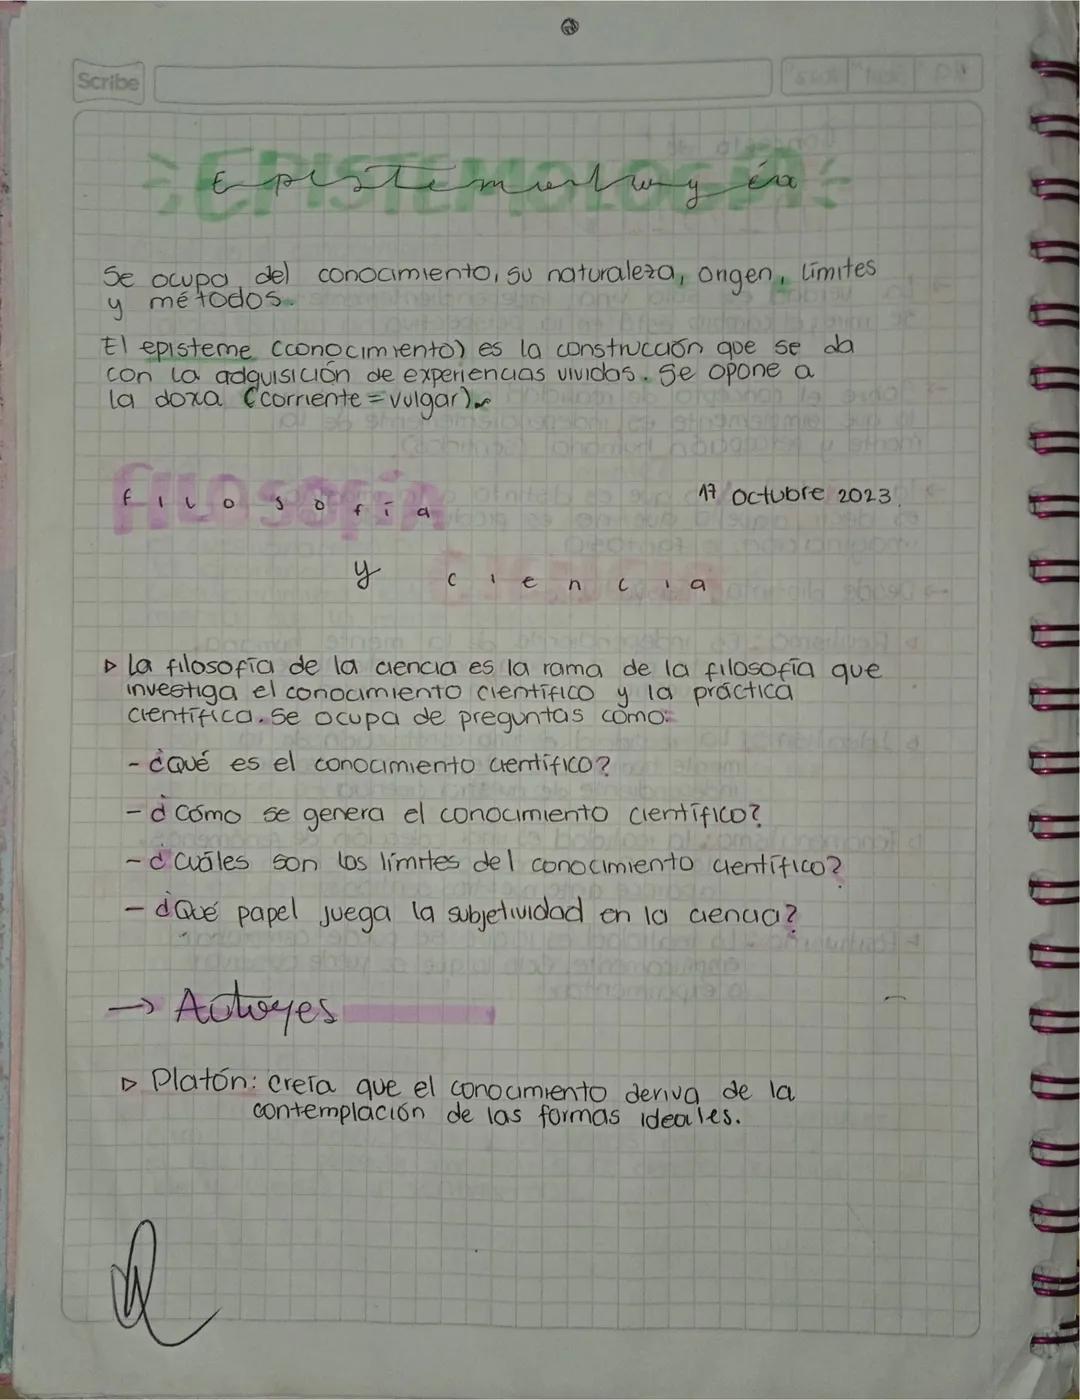 Scribe
Epistemología
Se ocupa del conocimiento, su naturaleza, origen, límites
y métodos.
El episteme (conocimiento) es la construcción que se da
con la adquisición de experiencias vividas. Se opone a
la doxa (corriente = vulgar).
filosofía
17 Octubre 2023.
y ciencia
▷ La filosofía de la ciencia es la rama de la filosofía que
investiga el conocimiento científico y la práctica
científica. Se ocupa de preguntas como:
- ¿Qué es el conocimiento científico?
- ¿Cómo se genera el conocimiento científico?
- ¿Cuáles son los límites del conocimiento científico?
- ¿Qué papel juega la subjetividad en la ciencia?
→ Autores
▷ Platón: creía que el conocimiento deriva de la
contemplación de las formas ideales.